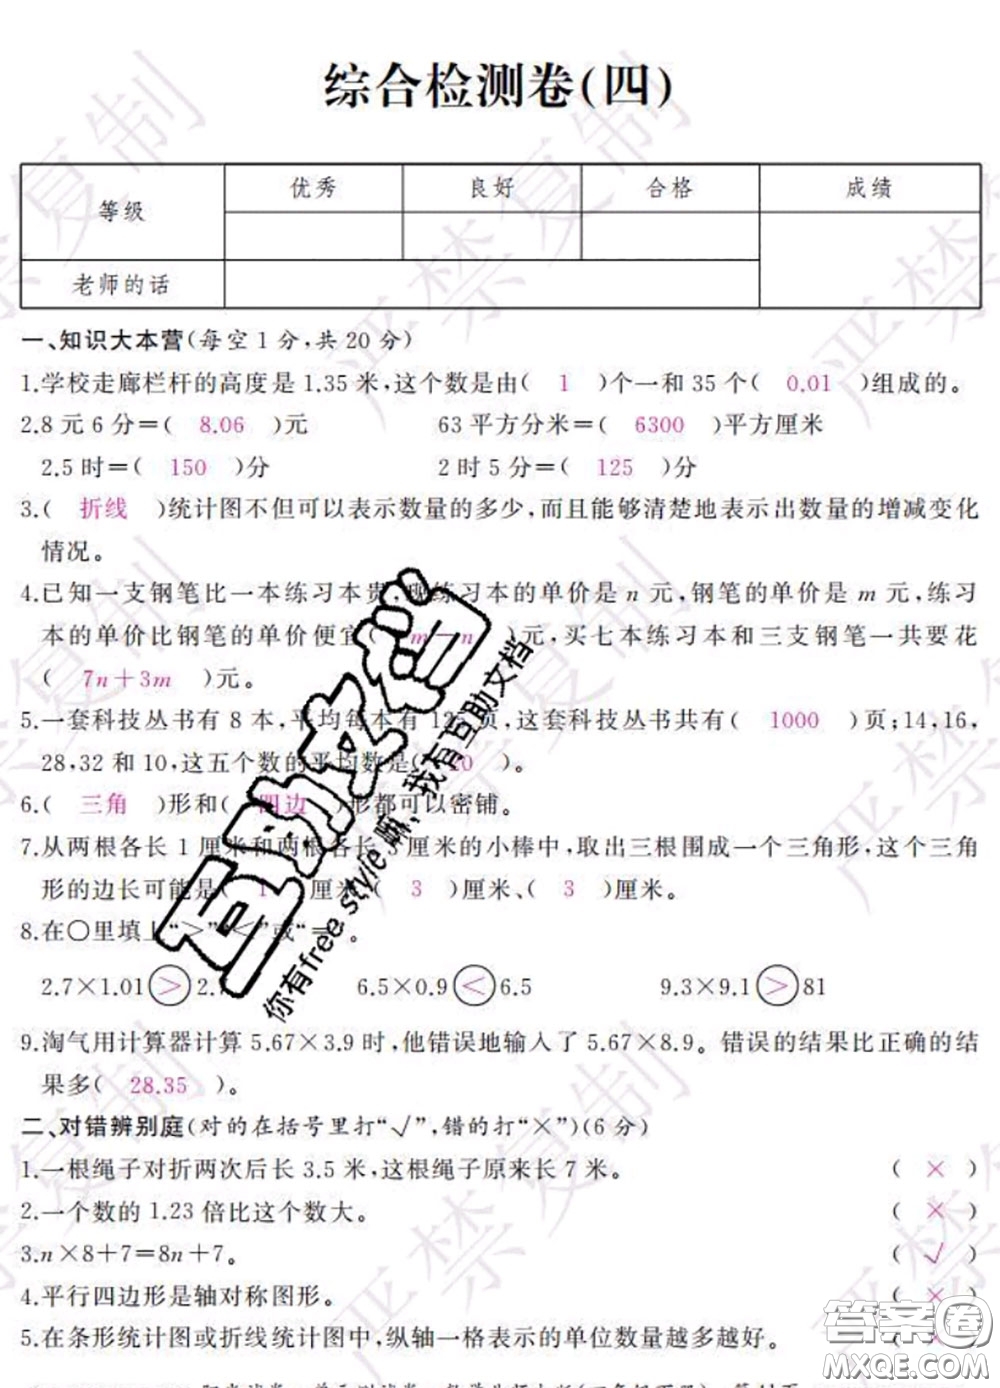 综合检测卷(四)
等级 优秀 良好 合格 成绩
老师的话
一、知识大本营(每空1分,共20分)
1.学校走廊栏杆的高度是1.35米,这个数是由( 1 )个一和35个( 0.01 )组成的。
2.8元6分=( 8.06 )元 63平方分米=( 6300 )平方厘米
2.5时=( 150 )分 2时5分=( 125 )分
3.( 折线 )统计图不但可以表示数量的多少,而且能够清楚地表示出数量的增减变化
情况。
4.已知一支钢笔比一本练习本贵,现练习本的单价是n元,钢笔的单价是m元,练习
本的单价比钢笔的单价便宜( m-n )元,买七本练习本和三支钢笔一共要花
( 7n+3m )元。
5.一套科技丛书有8本,平均每本有125页,这套科技丛书共有( 1000 )页;14,16,
28,32和10,这五个数的平均数是( 0 )。
6.( 三角 )形和( 四边 )形都可以密铺。
7.从两根各长1厘米和两根各长3厘米的小棒中,取出三根围成一个三角形,这个三角
形的边长可能是( 1 )厘米、( 3 )厘米、( 3 )厘米。
8.在○里填上“>”“<”或“=”。
2.7×1.01 > 2.7 6.5×0.9 < 6.5 9.3×9.1 > 81
9.淘气用计算器计算5.67×3.9时,他错误地输入了5.67×8.9。错误的结果比正确的结
果多( 28.35 )。
二、对错辨别庭(对的在括号里打“√”,错的打“×”)(6分)
1.一根绳子对折两次后长3.5米,这根绳子原来长7米。 ( × )
2.一个数的1.23倍比这个数大。 ( × )
3.n×8+7=8n+7。 ( √ )
4.平行四边形是轴对称图形。 ( × )
5.在条形统计图或折线统计图中,纵轴一格表示的单位数量越多越好。 ( × )
严禁复制
互助文档
你有free style嘛,我有互助文档
答案圈
MXQE.COM